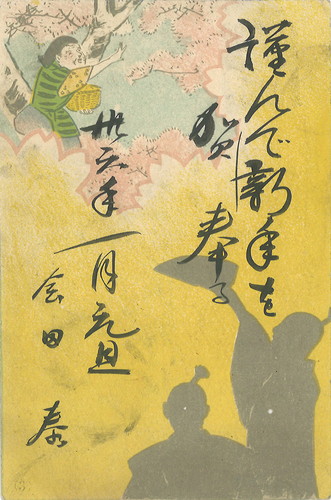 謹んで新年を
賀し奉る
卅六年
一月元旦
会田 泰